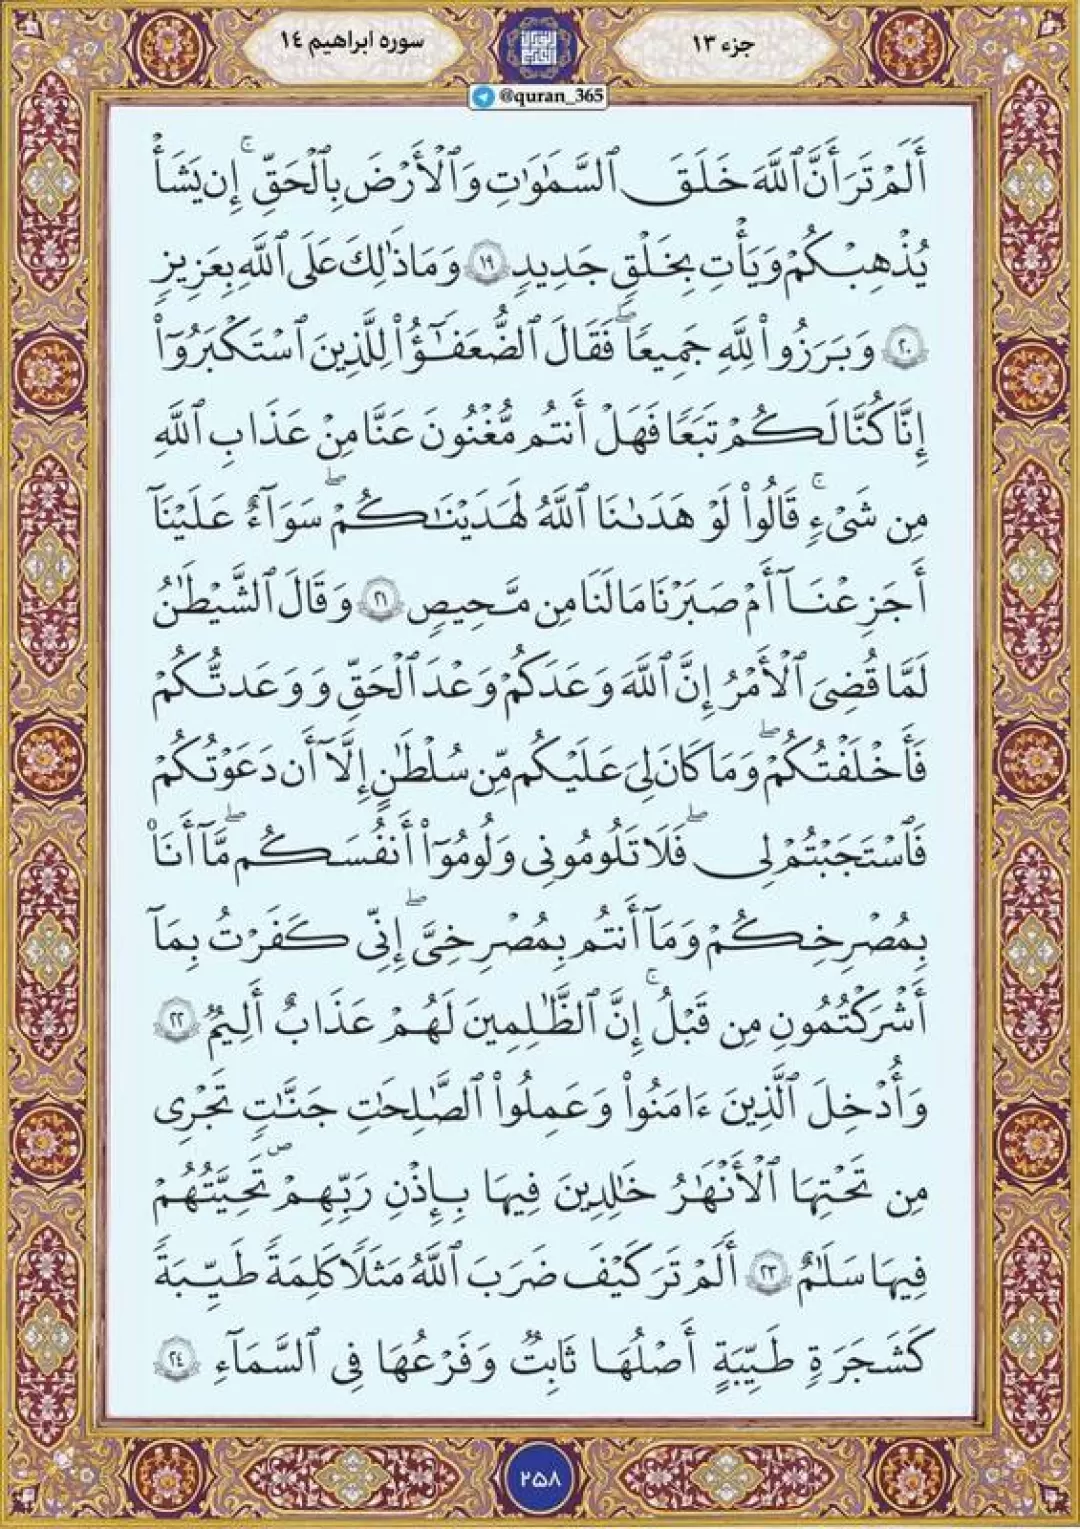 جزء ۱۳
سوره ابراهیم ۱٤
@quran_365
أَلَمْ تَرَ أَنَّ ٱللَّهَ خَلَقَ ٱلسَّمَٰوَٰتِ وَٱلْأَرْضَ بِٱلْحَقِّ ۚ إِن يَشَأْ
يُذْهِبْكُمْ وَيَأْتِ بِخَلْقٍ جَدِيدٍ ۱۹ وَمَا ذَٰلِكَ عَلَى ٱللَّهِ بِعَزِيزٍ
۲۰ وَبَرَزُوا۟ لِلَّهِ جَمِيعًا ۖ فَقَالَ ٱلضُّعَفَٰٓؤُا۟ لِلَّذِينَ ٱسْتَكْبَرُوٓا۟
إِنَّا كُنَّا لَكُمْ تَبَعًا فَهَلْ أَنتُم مُّغْنُونَ عَنَّا مِنْ عَذَابِ ٱللَّهِ
مِن شَىْءٍ ۚ قَالُوا۟ لَوْ هَدَىٰنَا ٱللَّهُ لَهَدَيْنَٰكُمْ ۖ سَوَآءٌ عَلَيْنَآ
أَجَزِعْنَآ أَمْ صَبَرْنَا مَا لَنَا مِن مَّحِيصٍ ۲۱ وَقَالَ ٱلشَّيْطَٰنُ
لَمَّا قُضِىَ ٱلْأَمْرُ إِنَّ ٱللَّهَ وَعَدَكُمْ وَعْدَ ٱلْحَقِّ وَوَعَدتُّكُمْ
فَأَخْلَفْتُكُمْ ۖ وَمَا كَانَ لِىَ عَلَيْكُم مِّن سُلْطَٰنٍ إِلَّآ أَن دَعَوْتُكُمْ
فَٱسْتَجَبْتُمْ لِى ۖ فَلَا تَلُومُونِى وَلُومُوٓا۟ أَنفُسَكُم ۖ مَّآ أَنَا۠
بِمُصْرِخِكُمْ وَمَآ أَنتُم بِمُصْرِخِىَّ ۖ إِنِّى كَفَرْتُ بِمَآ
أَشْرَكْتُمُونِ مِن قَبْلُ ۚ إِنَّ ٱلظَّٰلِمِينَ لَهُمْ عَذَابٌ أَلِيمٌ ۲۲
وَأُدْخِلَ ٱلَّذِينَ ءَامَنُوا۟ وَعَمِلُوا۟ ٱلصَّٰلِحَٰتِ جَنَّٰتٍ تَجْرِى
مِن تَحْتِهَا ٱلْأَنْهَٰرُ خَٰلِدِينَ فِيهَا بِإِذْنِ رَبِّهِمْ ۖ تَحِيَّتُهُمْ
فِيهَا سَلَٰمٌ ۲۳ أَلَمْ تَرَ كَيْفَ ضَرَبَ ٱللَّهُ مَثَلًا كَلِمَةً طَيِّبَةً
كَشَجَرَةٍ طَيِّبَةٍ أَصْلُهَا ثَابِتٌ وَفَرْعُهَا فِى ٱلسَّمَآءِ ۲٤
۲۵۸